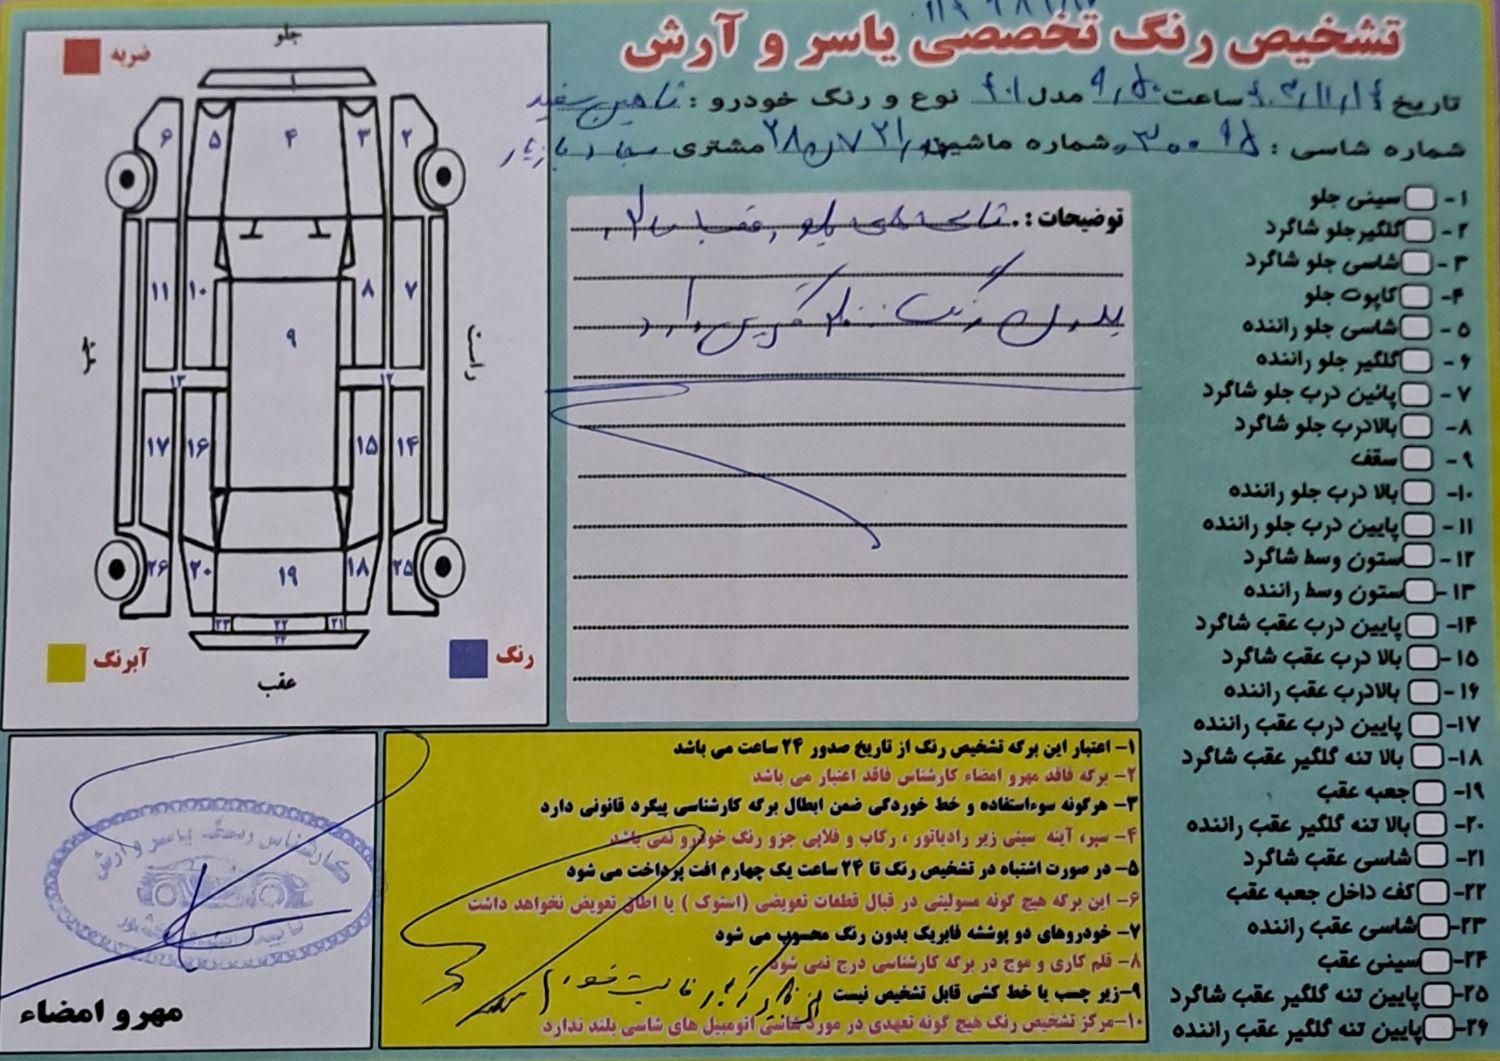 تشخیص رنگ تخصصی یاسر و آرش
تاریخ ۴۰۳/۱۱/۱۴ ساعت ۹/۵۰ مدل ۴۰۱ نوع و رنگ خودرو : شاهین سفید
شماره شاسی : ۳۰۰۹۵ شماره ماشین مشتری
ضربه
جلو
۱
۲
۳
۴
۵
۶
۷
۸
۹
۱۰
۱۱
۱۲
۱۳
۱۴
۱۵
۱۶
۱۷
۱۸
۱۹
۲۰
۲۱
۲۲
۲۳
۲۴
۲۵
۲۶
راست
چپ
رنگ
آبرنگ
عقب
توضیحات :
شاسی های جلو و عقب سالم
بدون رنگ
۱- سینی جلو
۲- گلگیرجلو شاگرد
۳- شاسی جلو شاگرد
۴- کاپوت جلو
۵- شاسی جلو راننده
۶- گلگیر جلو راننده
۷- پائین درب جلو شاگرد
۸- بالادرب جلو شاگرد
۹- سقف
۱۰- بالا درب جلو راننده
۱۱- پایین درب جلو راننده
۱۲- ستون وسط شاگرد
۱۳- ستون وسط راننده
۱۴- پایین درب عقب شاگرد
۱۵- بالا درب عقب شاگرد
۱۶- بالادرب عقب راننده
۱۷- پایین درب عقب راننده
۱۸- بالا تنه گلگیر عقب شاگرد
۱۹- جعبه عقب
۲۰- بالا تنه گلگیر عقب راننده
۲۱- شاسی عقب شاگرد
۲۲- کف داخل جعبه عقب
۲۳- شاسی عقب راننده
۲۴- سینی عقب
۲۵- پایین تنه گلگیر عقب شاگرد
۲۶- پایین تنه گلگیر عقب راننده
۱- اعتبار این برگه تشخیص رنگ از تاریخ صدور ۲۴ ساعت می باشد
۲- برگه فاقد مهرو امضاء کارشناس فاقد اعتبار می باشد
۳- هرگونه سوءاستفاده و خط خوردگی ضمن ابطال برگه کارشناسی پیگرد قانونی دارد
۴- سپر، آینه سینی زیر رادیاتور ، رکاب و قلاپی جزو رنگ خودرو نمی باشد
۵- در صورت اشتباه در تشخیص رنگ تا ۲۴ ساعت یک چهارم افت پرداخت می شود
۶- این برگه هیچ گونه مسولیتی در قبال قطعات تعویضی (استوک ) یا اطاق تعویض نخواهد داشت
۷- خودروهای دو پوشته فابریک بدون رنگ محسوب می شود
۸- قلم کاری و موج در برگه کارشناسی درج نمی شود
۹-زیر چسب یا خط کشی قابل تشخیص نیست
۱۰-مرکز تشخیص رنگ هیچ گونه تعهدی در مورد شاسی اتومبیل های شاسی بلند ندارد
کارشناس رنگ یاسر و آرش
مهرو امضاء